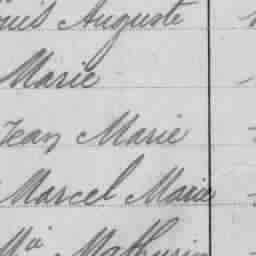 Auguste
Marie
Jean Marie
Marcel Marie
Mathurin